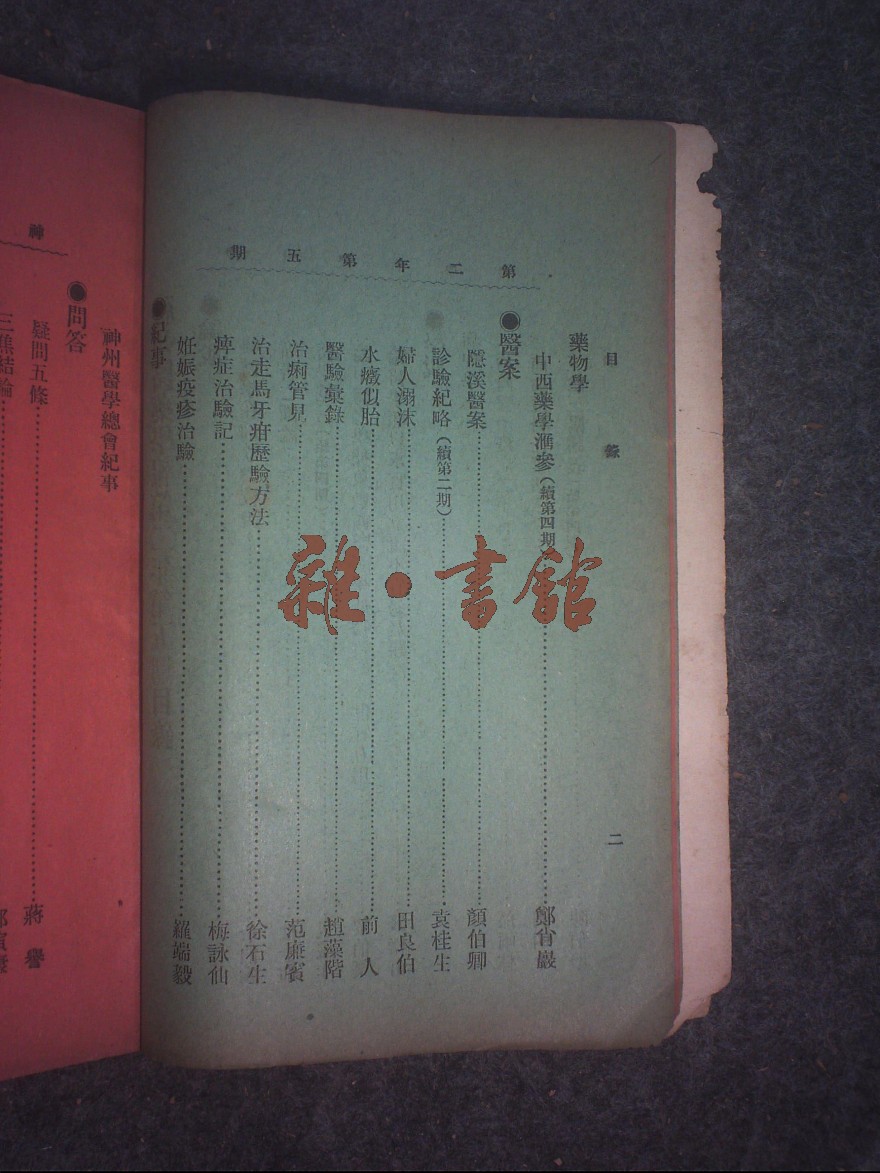 第二年第五期
目錄
二
藥物學
中西藥學滙參(續第四期)……鄭肖巖
◉醫案
隱溪醫案……顏伯卿
診驗紀略(續第二期)……袁桂生
婦人溺沫……田良伯
水癥似胎……前人
醫驗彙錄……趙藻階
治痢管見……范庶賓
治走馬牙疳歷驗方法……徐石生
痺症治驗記……梅詠仙
妊娠疫疹治驗……羅端毅
◉紀事
神州醫學總會紀事
◉問答
疑問五條……蔣譽
三焦結論
神
雜·書館